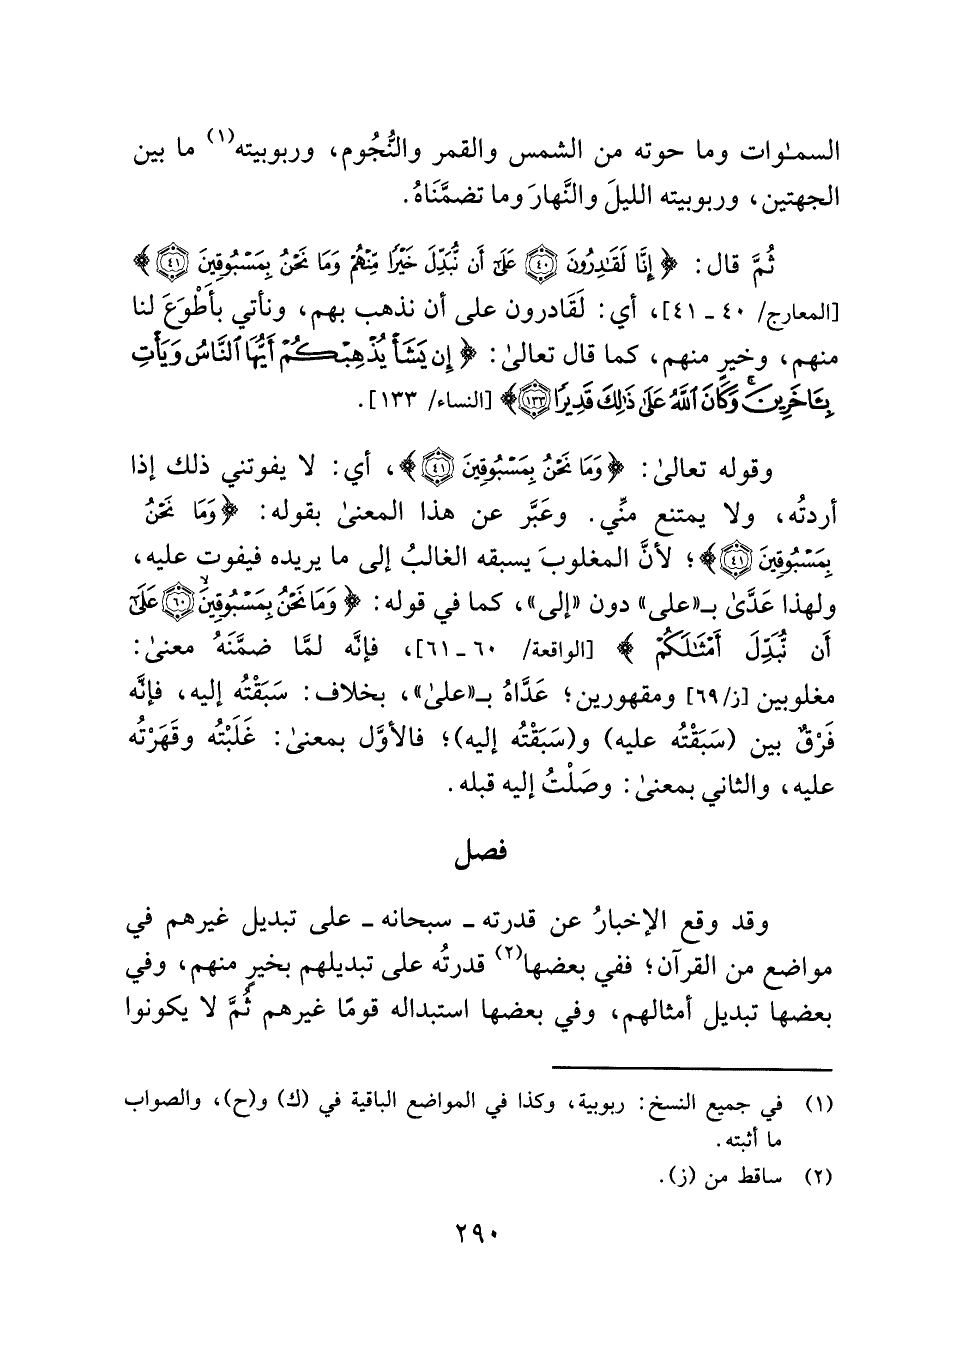 السمٰوات وما حوته من الشمس والقمر والنُّجُوم، وربوبيته(١) ما بين
الجهتين، وربوبيته الليلَ والنَّهارَ وما تضمَّنَاهُ.
ثُمَّ قال: ﴿إِنَّا لَقَٰدِرُونَ ٤٠ عَلَىٰٓ أَن نُّبَدِّلَ خَيْرٗا مِّنْهُمْ وَمَا نَحْنُ بِمَسْبُوقِينَ ٤١﴾
[المعارج/ ٤٠ ـ ٤١]، أي: لَقَادرون على أن نذهب بهم، ونأتي بأَطْوَعَ لنا
منهم، وخيرٍ منهم، كما قال تعالىٰ: ﴿إِن يَشَأْ يُذْهِبْكُمْ أَيُّهَا ٱلنَّاسُ وَيَأْتِ
بِـَٔاخَرِينَۚ وَكَانَ ٱللَّهُ عَلَىٰ ذَٰلِكَ قَدِيرٗا ١٣٣﴾ [النساء/ ١٣٣].
وقوله تعالىٰ: ﴿وَمَا نَحْنُ بِمَسْبُوقِينَ ٤١﴾، أي: لا يفوتني ذلك إذا
أردتُه، ولا يمتنع منِّي. وعَبَّر عن هذا المعنىٰ بقوله: ﴿وَمَا نَحْنُ
بِمَسْبُوقِينَ ٤١﴾؛ لأنَّ المغلوبَ يسبقه الغالبُ إلى ما يريده فيفوت عليه،
ولهذا عَدَّىٰ بـ«على» دون «إلى»، كما في قوله: ﴿وَمَا نَحْنُ بِمَسْبُوقِينَۙ ٦٠ عَلَىٰٓ
أَن نُّبَدِّلَ أَمْثَٰلَكُمْ﴾ [الواقعة/ ٦٠ ـ ٦١]، فإنَّه لمَّا ضمَّنَهُ معنىٰ:
مغلوبين [ز/٦٩] ومقهورين؛ عَدَّاهُ بـ«علىٰ»، بخلاف: سَبَقْتُه إليه، فإنَّه
فَرْقٌ بين (سَبَقْتُه عليه) و(سَبَقْتُه إليه)؛ فالأوَّل بمعنىٰ: غَلَبْتُه وقَهَرْتُه
عليه، والثاني بمعنىٰ: وصَلْتُ إليه قبله.
فصل
وقد وقع الإخبارُ عن قدرته ـ سبحانه ـ على تبديل غيرهم في
مواضع من القرآن؛ ففي بعضها(٢) قدرتُه على تبديلهم بخيرٍ منهم، وفي
بعضها تبديل أمثالهم، وفي بعضها استبداله قومًا غيرهم ثُمَّ لا يكونوا
(١) في جميع النسخ: ربوبية، وكذا في المواضع الباقية في (ك) و(ح)، والصواب
ما أثبته.
(٢) ساقط من (ز).
٢٩٠